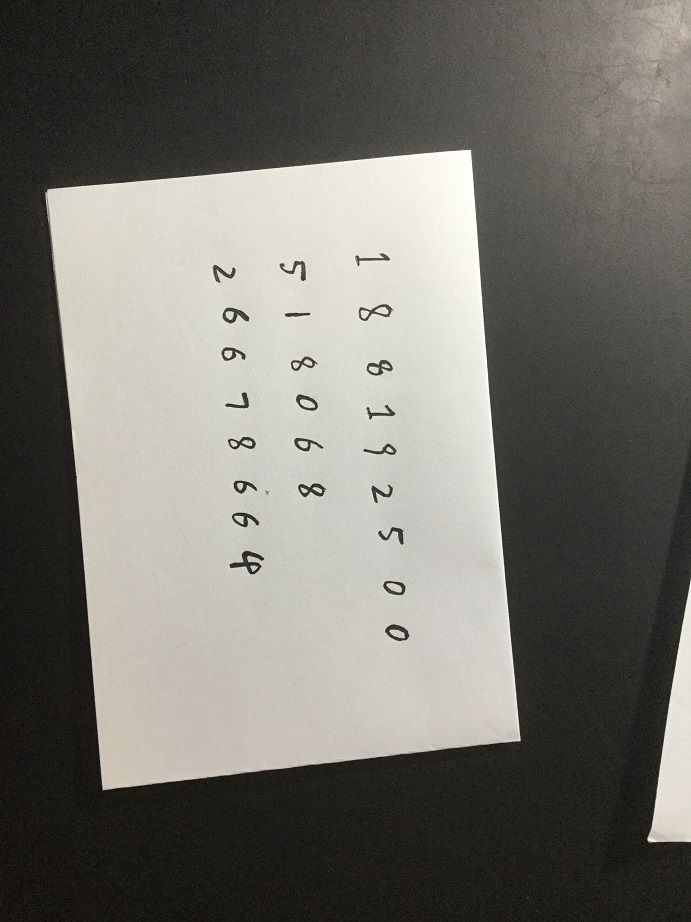 188192500
518068
26678664